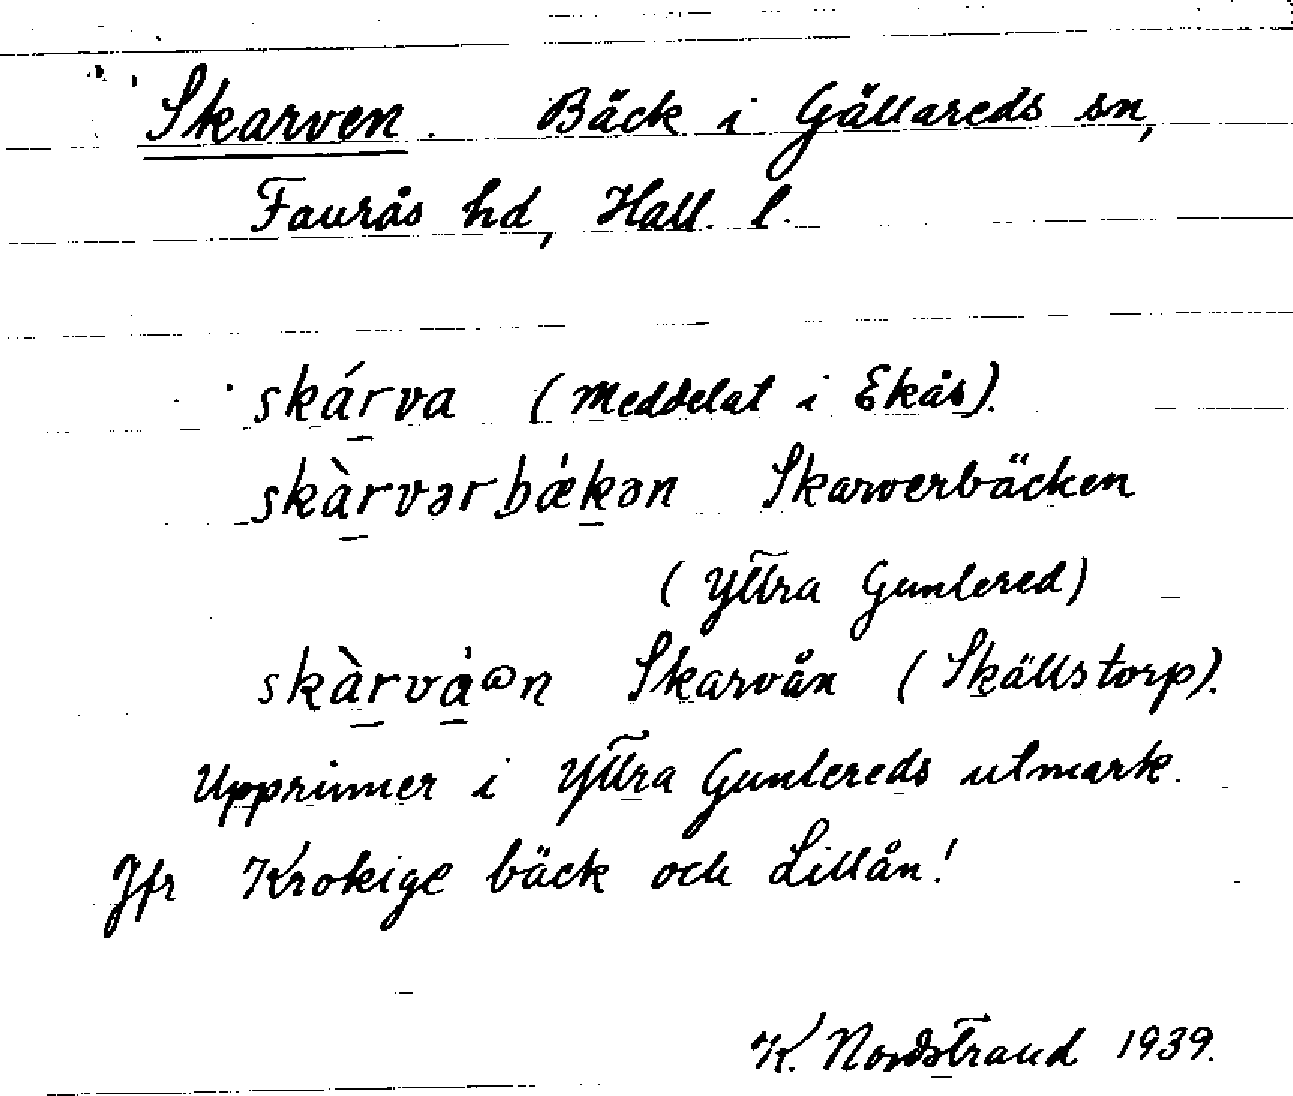 Skarven. Bäck i Gällareds sn,
Faurås hd, Hall. l.
skárva (meddelat i Ekås).
skàrvərbǽkən Skarverbäcken
(Yttra Guntered)
skàrvȧ̀ən Skarvån (Skällstorp).
Upprinner i Yttra Guntereds utmark.
Jfr Krokige bäck och Lillån!
K. Nordstrand 1939.